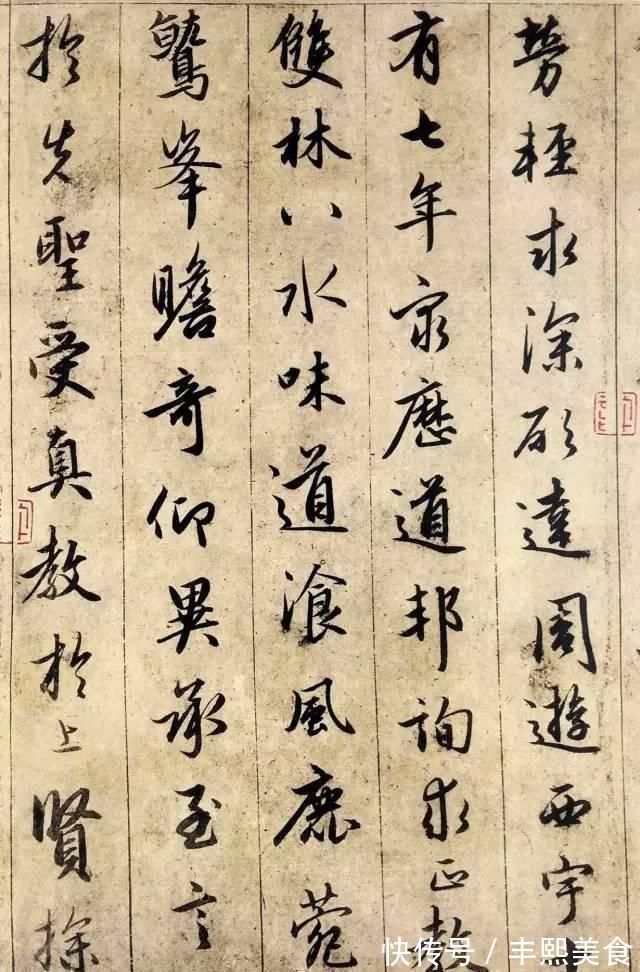 勞輕求深願達周遊西宇
有七年窮歷道邦詢求正教
雙林八水味道飡風鹿菀
鷲峯瞻奇仰異承至言
於先聖受真教於上賢探
快传号 / 丰熙美食